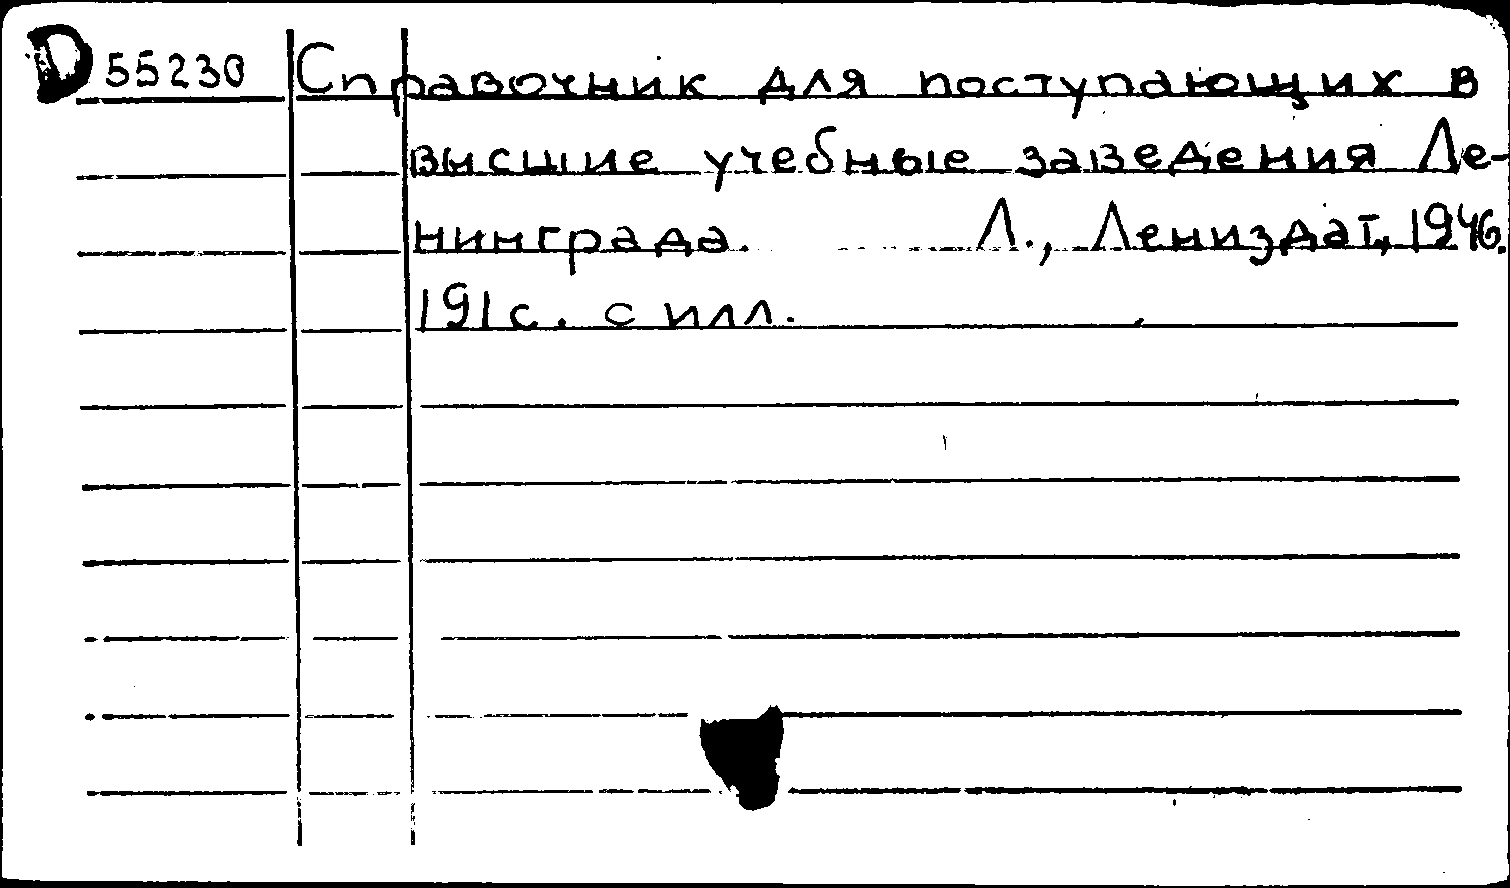 D 55230 Справочник для поступающих в
высшие учебные заведения Ле-
нинграда. Л., Лениздат, 1946.
191 с. с илл.